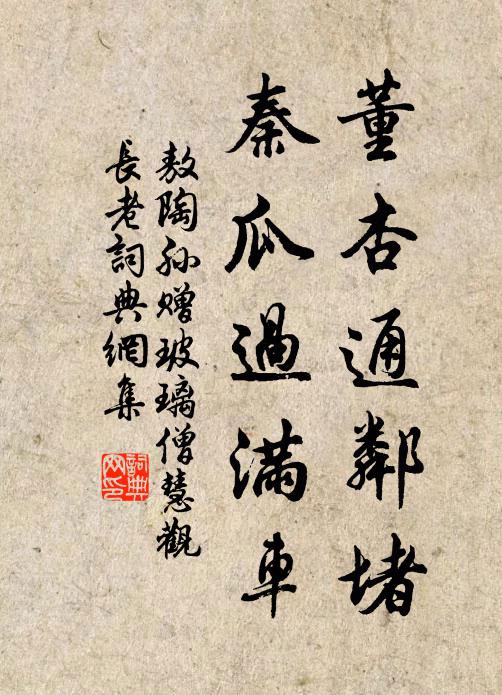 董杏通鄰堵
秦瓜過滿車
敖陶孫贈玻璃僧慧觀
長老詞典網集
詞典網印